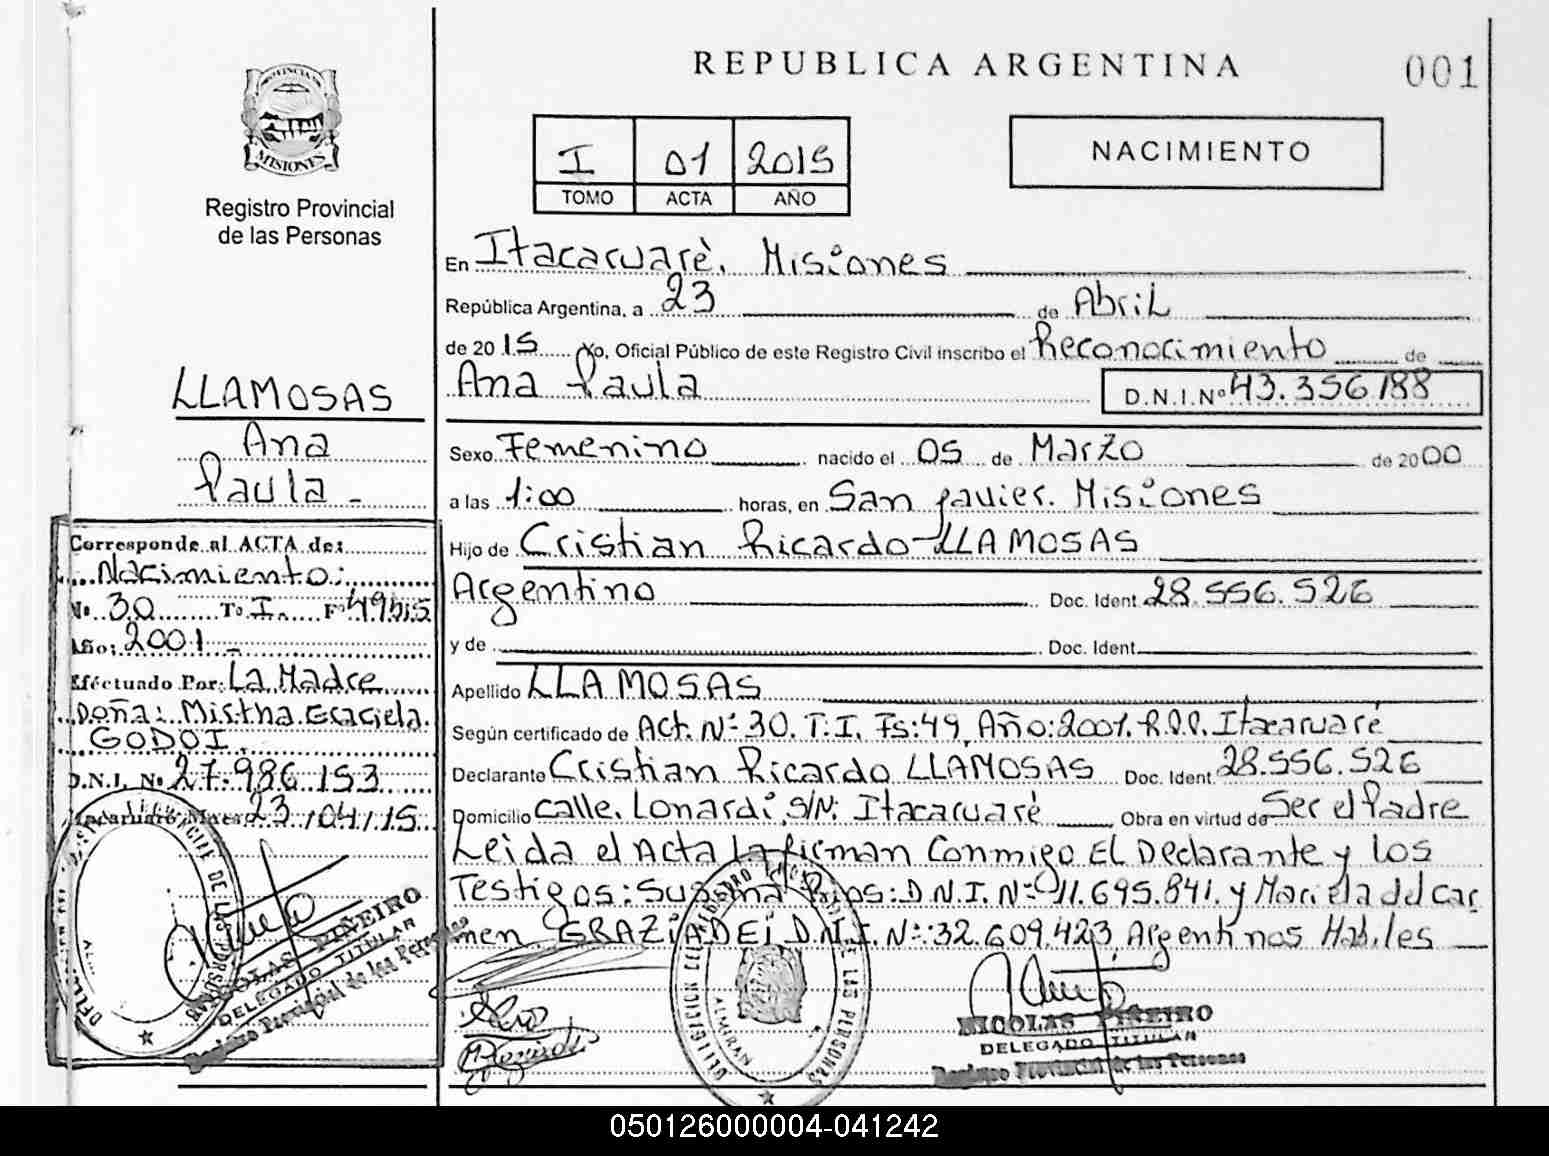 REPUBLICA ARGENTINA
001
PROVINCIA
MISIONES
Registro Provincial
de las Personas
I 01 2015
TOMO ACTA AÑO
NACIMIENTO
En Itacaruarè. Misiones
República Argentina, a 23 de Abril
de 2015 Yo, Oficial Público de este Registro Civil inscribo el Reconocimiento de
Ana Paula D.N.I.Nº 43.356.188
LLAMOSAS
Ana
Paula -
Sexo Femenino nacido el 05 de Marzo de 2000
a las 1:00 horas, en San Javier. Misiones
Hijo de Cristian Ricardo LLAMOSAS
Argentino Doc. Ident. 28.556.526
y de Doc. Ident.
Apellido LLAMOSAS
Según certificado de Act. Nº 30. T: I. Fs: 49, Año: 2001. R.P.P. Itacaruarè
Declarante Cristian Ricardo LLAMOSAS Doc. Ident. 28.556.526
Domicilio calle. Lonardi S/N: Itacaruarè Obra en virtud de Ser el Padre
Leida el Acta La firman Conmigo EL Declarante y los
Testigos: Susana Rios: D.N.I. Nº 11.695.841. y Mariela del Car
men GRAZIADEI D.N.I. Nº: 32.609.423 Argentinos Habiles
Corresponde al ACTA de:
Nacimiento:
Nº 30 Tº I. Fº 49
Año: 2001 -
Eféctuado Por: La Madre
Doña: Mirtha Graciela
GODOI.
D.N.I. Nº 27.986.153
Itacaruaré, Mnes. 23/04/15
NICOLAS PIÑEIRO
DELEGADO TITULAR
Registro Provincial de las Personas
NICOLAS PIÑEIRO
DELEGADO TITULAR
Registro Provincial de las Personas
050126000004-041242